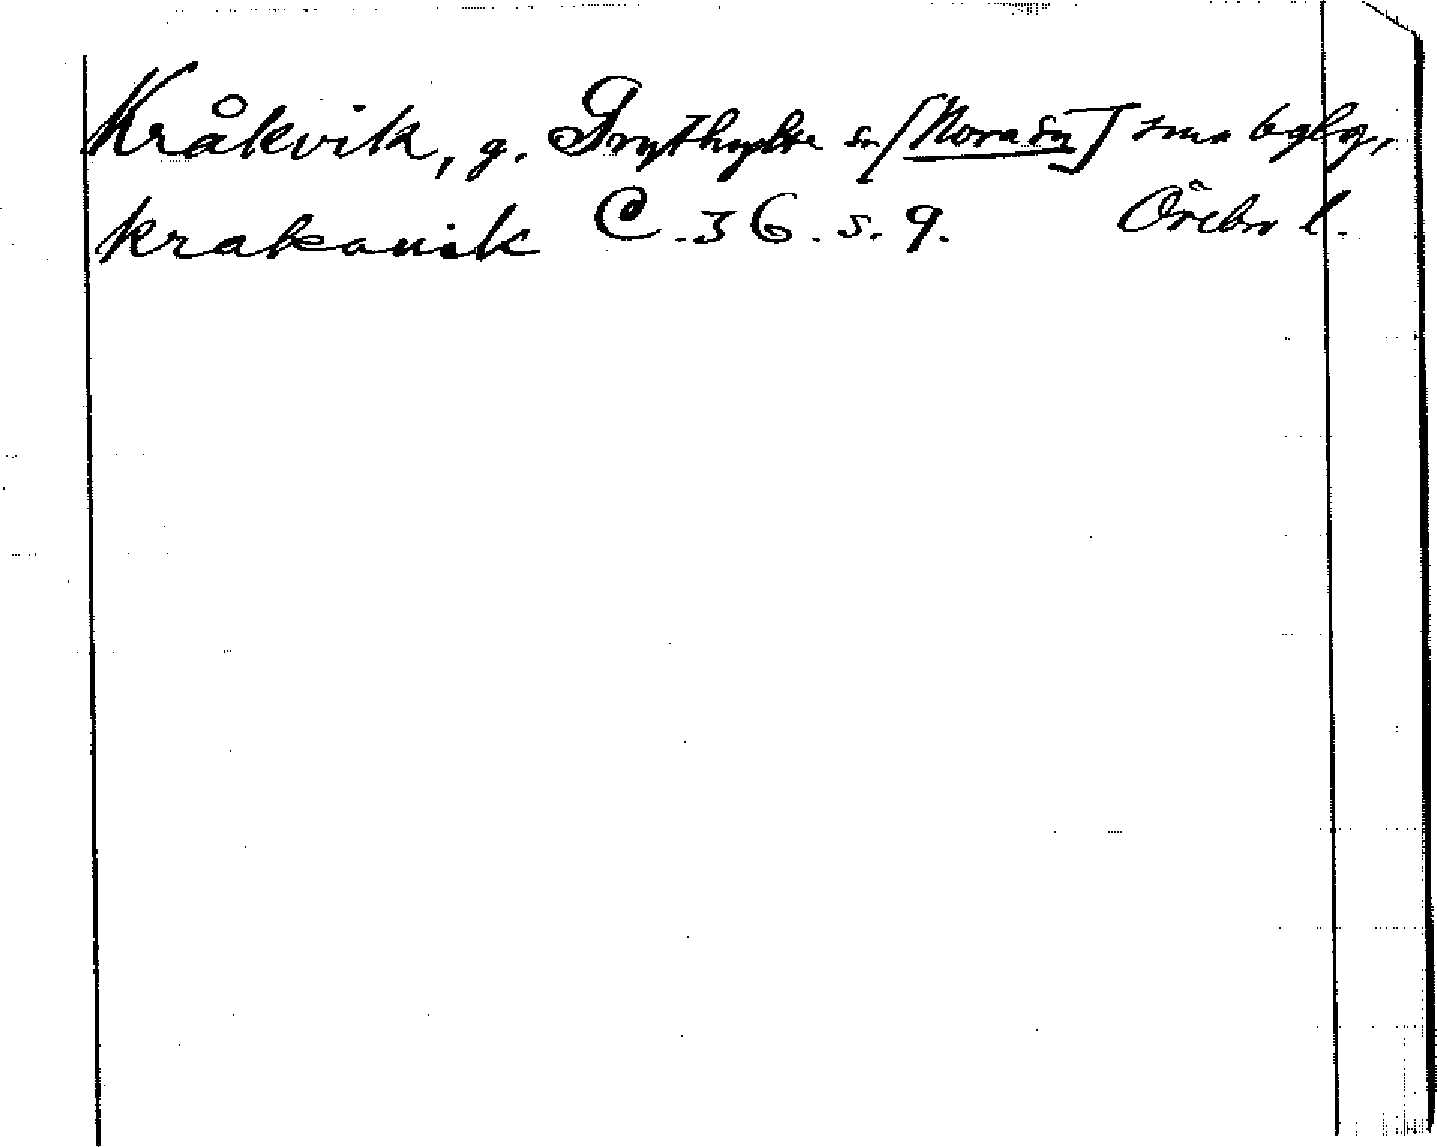 Kråkvik, g. Grythytte sn [Nora sn] sma bglg.,
krakauik C. 36. s. 9. Örebro l.